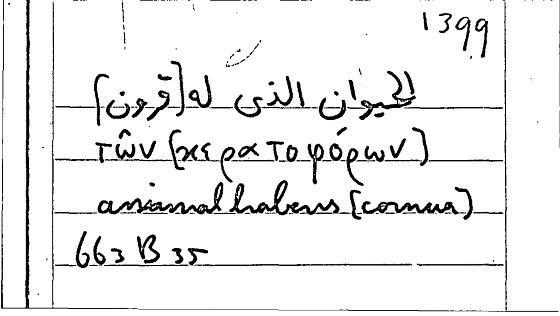 1399
الحيوان الذى له [قرون]
τῶν [κερατοφόρων]
animal habens [cornua]
663 B 35